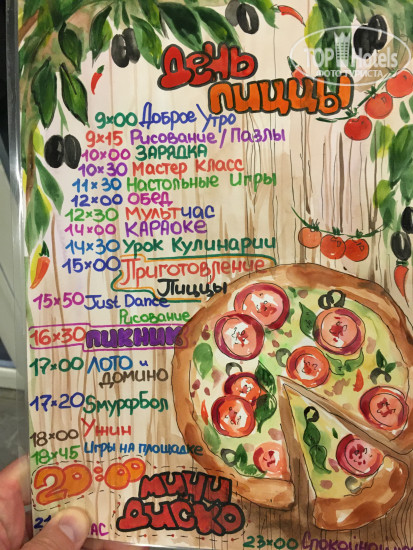 TOPHotels
ФОТО ТУРИСТА
День
ПИЦЦЫ
9×00 Доброе Утро
9×15 Рисование/Пазлы
10×00 ЗАРЯДКА
10×30 Мастер Класс
11×30 Настольные Игры
12×00 ОБЕД
12×30 МУЛЬТЧАС
14×00 КАРАОКЕ
14×30 Урок Кулинарии
15×00 Приготовление
Пиццы
15×50 Just Dance
Рисование
16×30 ПИКНИК
17×00 ЛОТО и
ДОМИНО
17×20 Sмурфбол
18×00 Ужин
18×45 Игры на площадке
20:00 МИНИ
ДИСКО
23×00